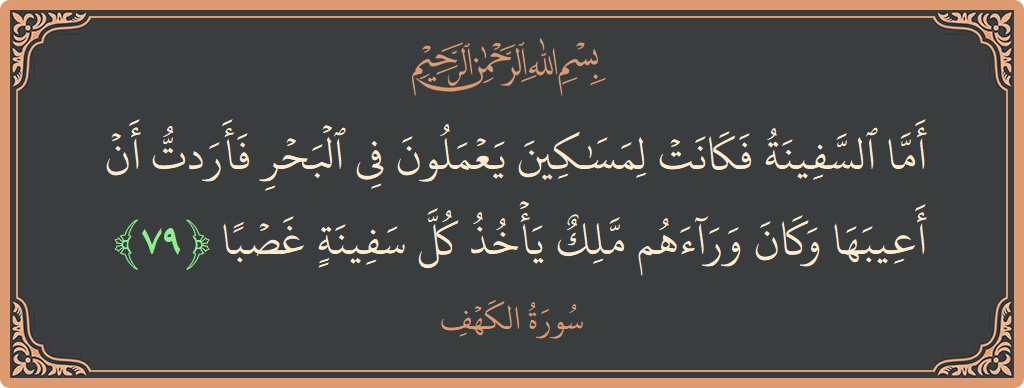 بِسْمِ اللهِ الرَّحْمٰنِ الرَّحِيْمِ
أَمَّا ٱلسَّفِينَةُ فَكَانَتْ لِمَسَٰكِينَ يَعْمَلُونَ فِى ٱلْبَحْرِ فَأَرَدتُّ أَنْ
أَعِيبَهَا وَكَانَ وَرَآءَهُم مَّلِكٌ يَأْخُذُ كُلَّ سَفِينَةٍ غَصْبًا ﴿٧٩﴾
سُورَةُ الكَهْفِ